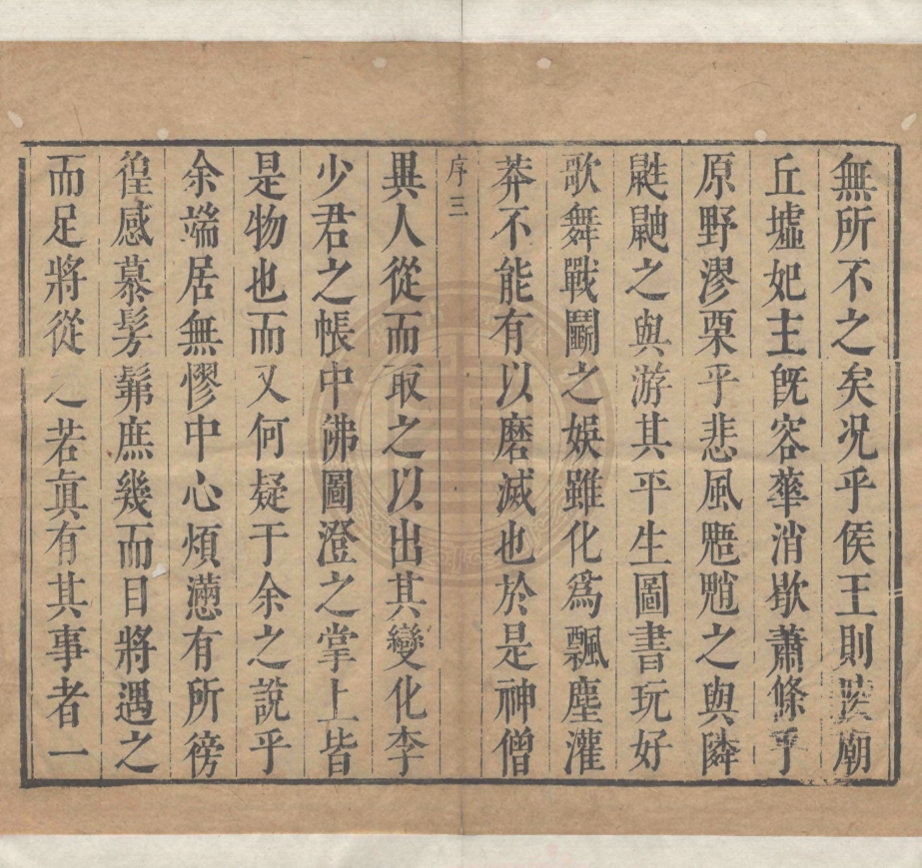 無所不之矣况乎侯王則陵廟
丘墟妃主旣容華消歇蕭條乎
原野漻栗乎悲風魑魈之與隣
鼪鼬之與游其平生圖書玩好
歌舞戰鬭之娛雖化爲飄塵灌
莽不能有以磨滅也於是神僧
序三
異人從而取之以出其變化李
少君之帳中佛圖澄之掌上皆
是物也而又何疑于余之說乎
余端居無憀中心煩懣有所徬
徨感慕髣髴庶幾而目將遇之
而足將從之若眞有其事者一